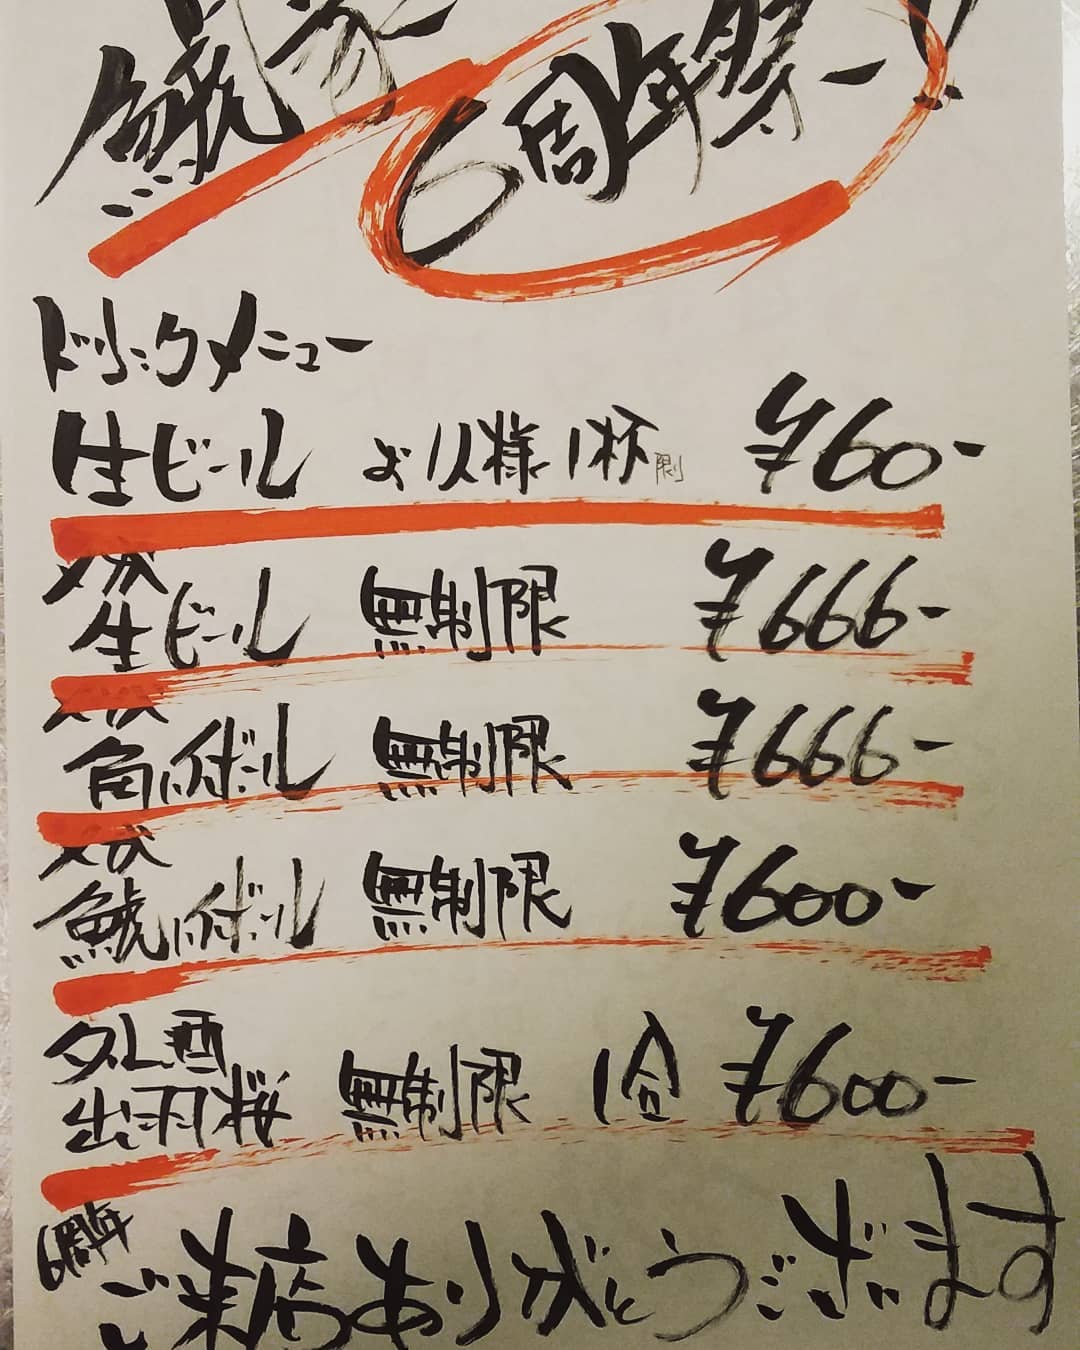 鯱家
6周年祭ー!!
ドリンクメニュー
生ビール お1人様1杯限り ¥60-
メガ
生ビール 無制限 ¥666-
メガ
角ハイボール 無制限 ¥666-
メガ
鯱ハイボール 無制限 ¥600-
ダル酒
出羽桜 無制限 1合 ¥600-
6周年
ご来店ありがとうございます